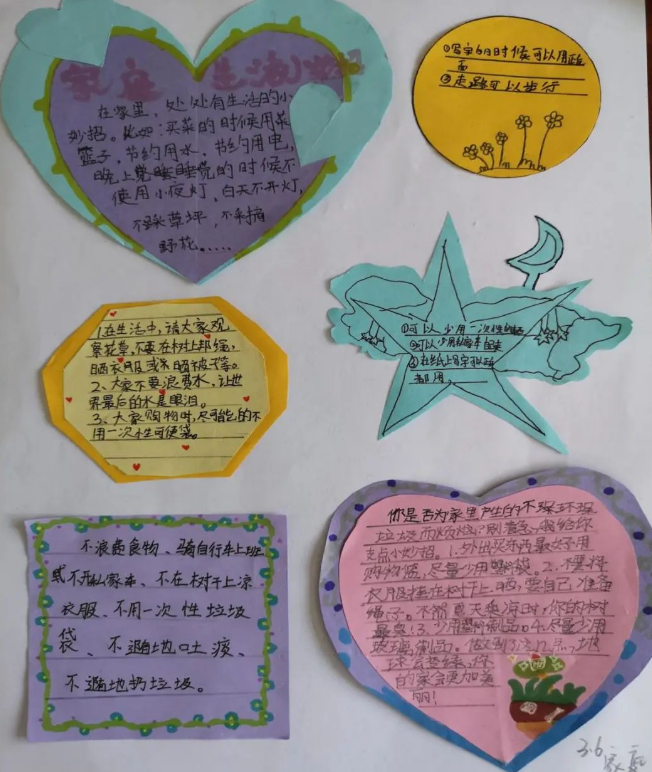 家庭 生活小妙招
在家里，处处有生活的小
妙招。比如:买菜的时候用菜
篮子，节约用水，节约用电，
晚上睡觉的时候不
使用小夜灯，白天不开灯，
不踩草坪，不采摘
野花.....
①写字的时候可以用政
面
②走路可以步行
①可以少用一次性的
②可以少用私家车
③在纸上写字
都用
1.在生活中，请大家观
察花草，不要在树上绑绳，
晒衣服或晒被子等。
2、大家不要浪费水，让世
界最后的水是眼泪。
3、大家购物时，尽可能的不
用一次性可便袋。
不浪费食物、骑自行车上班
或不开私家车、不在树干上凉
衣服、不用一次性垃圾
袋、不随地吐痰、
不随地扔垃圾。
你是否为家里产生的不环环保
垃圾而烦恼?别着急，我给你
支点小妙招。1.外出买东西最好用
购物篮，尽量少用塑料袋。2.不要将
衣服挂在树干上晒，要自己准备
绳子。不然夏天乘凉时，你的树
最臭!3.少用塑料制品。4.尽量少用
玻璃制品。做到了这几点，地
球会变绿，你
的家会更加美
丽!
3.6 家庭